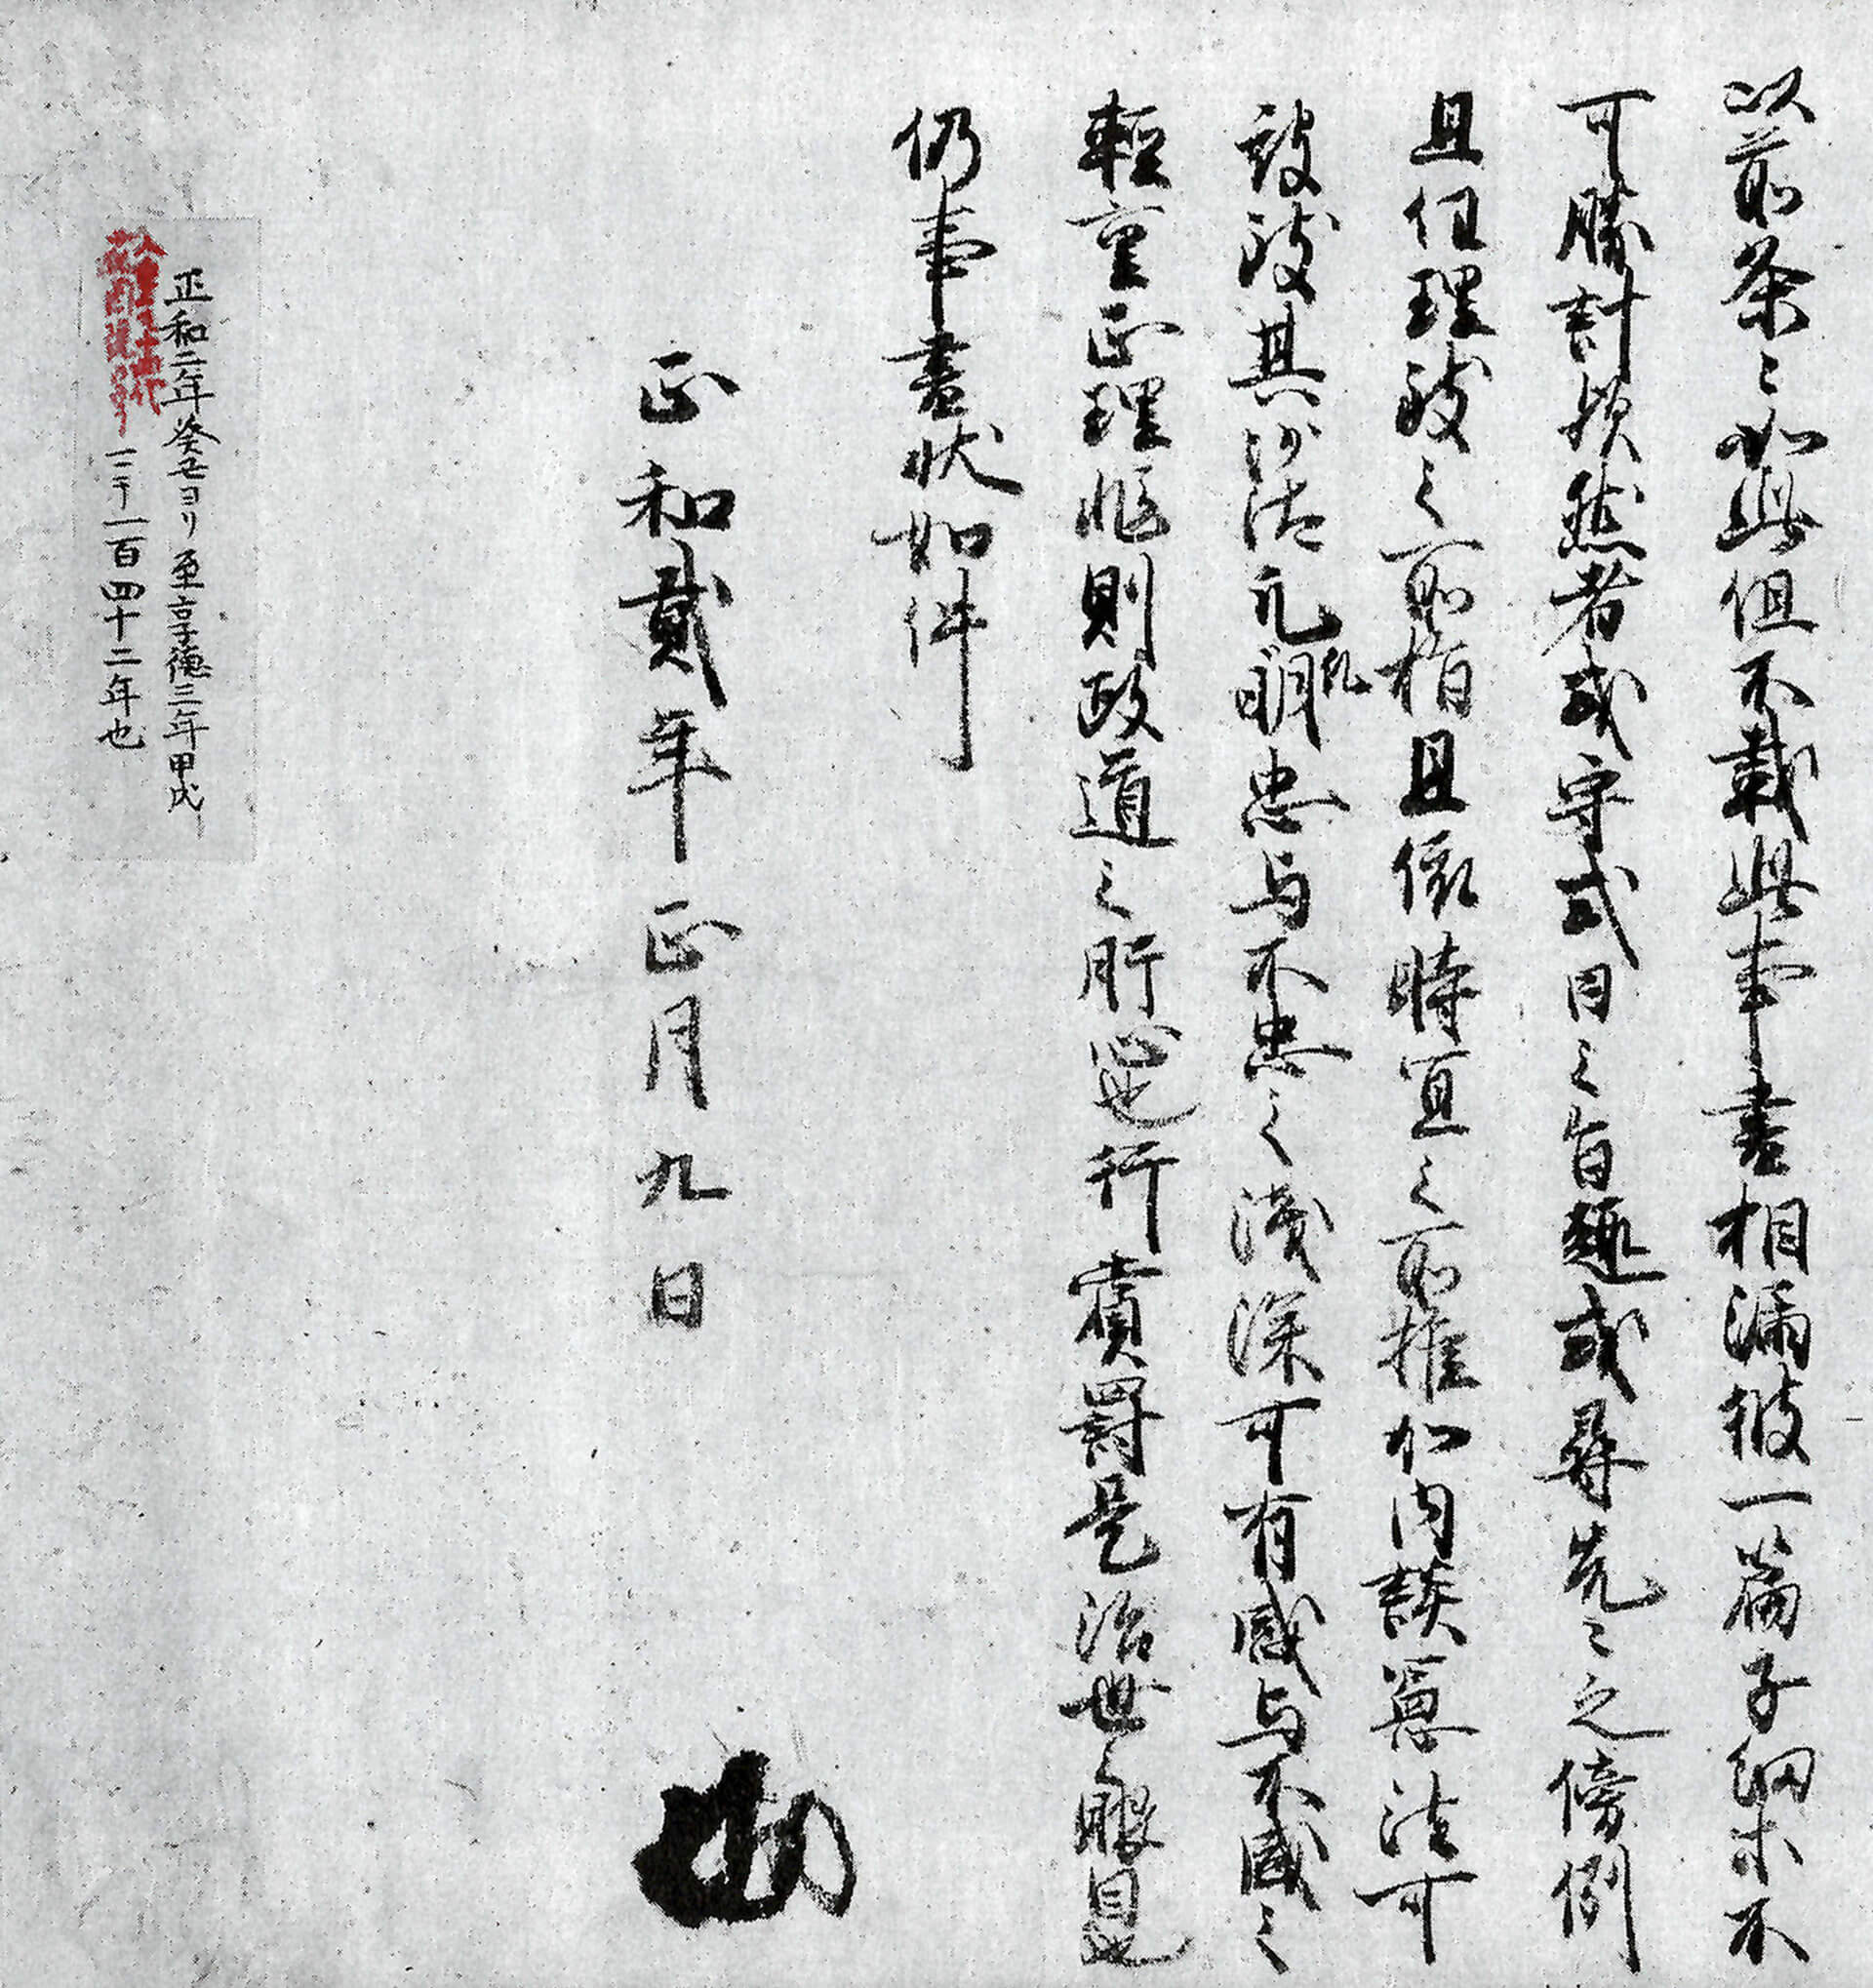 以前条々如此但不載此事書相漏彼一篇子細等不
可勝計歟然者或守式目之旨趣或尋先々之傍例
且任理致之所指且依時宜之所推加内談篇法可
致其沙汰凡糺明忠与不忠之淺深可有感与不感之
輕重正理帳則政道之肝心也行賞罰是治世之眼目也
仍事書状如件
正和貳年正月九日
正和二年癸丑ヨリ至享徳三年甲戌
一百四十二年也